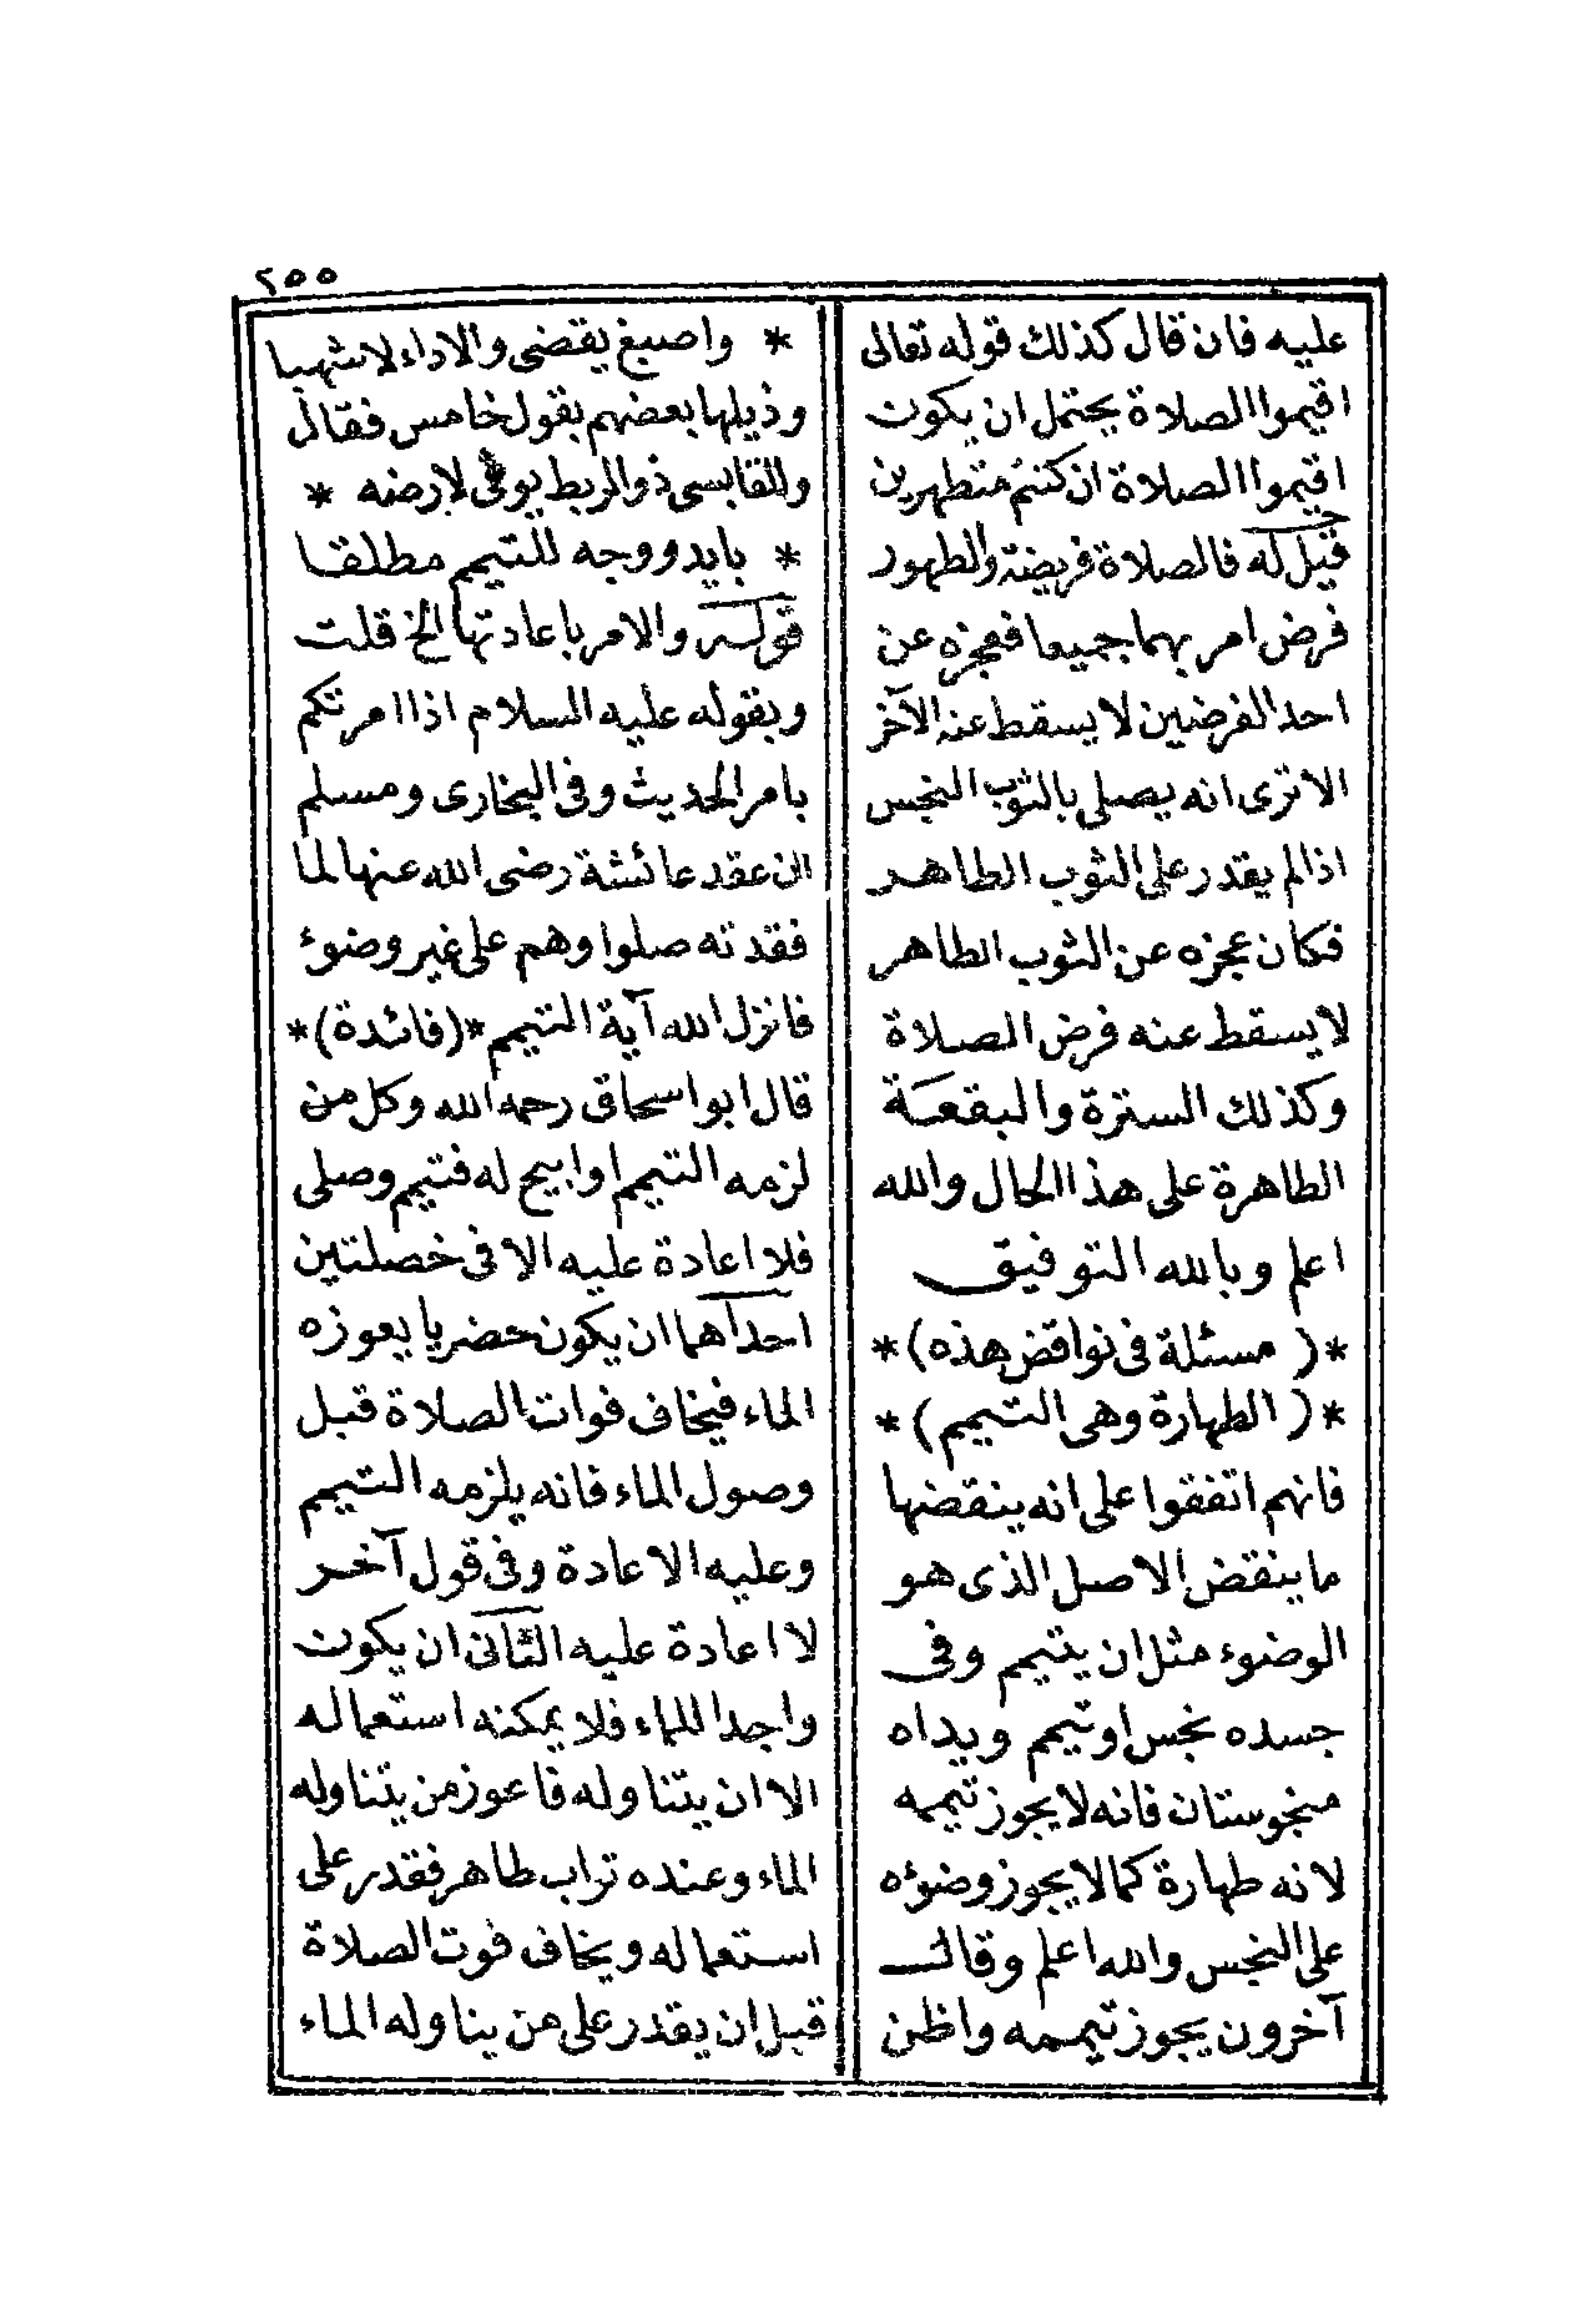 ٢٥٥
عليه فان قال كذلك قوله تعالى
اقيموا الصلاة يحتمل ان يكون
اقيموا الصلاة ان كنتم متطهرين
قيل له فالصلاة فريضة والطهور
فرض امر بهما جميعا فعجزه عن
احد الفرضين لا يسقط عنه الآخر
الا ترى انه يصلى بالثوب النجس
اذا لم يقدر على الثوب الطاهر
فكان عجزه عن الثوب الطاهر
لا يسقط عنه فرض الصلاة
وكذلك السترة والبقعة
الطاهرة على هذا الحال والله
اعلم وبالله التوفيق
*( مسئلة فى نواقض هذه )*
*( الطهارة وهى التيمم )*
فانهم اتفقوا على انه ينقضها
ما ينقض الاصل الذى هو
الوضوء مثل ان يتيمم وفى
جسده نجس او تيمم ويداه
منجوستان فانه لا يجوز تيممه
لانه طهارة كما لا يجوز وضوءه
على النجس والله اعلم وقال
آخرون يجوز تيممه واظن
* واصبغ يقضى والاداء لاشهبا
وذيلها بعضهم بقول خامس فقال
وللقابسى ذو الربط يومى لارضه *
* بايد ووجه للتيمم مطلقا
قوله والامر باعادتها الخ قلت
وبقوله عليه السلام اذا امرتكم
بامر الحديث وفى البخارى ومسلم
ان عقد عائشة رضى الله عنها لما
فقدته صلوا وهم على غير وضوء
فانزل الله آية التيمم *(فائدة)*
قال ابو اسحاق رحمه الله وكل من
لزمه التيمم او ابيح له فتيمم وصلى
فلا اعادة عليه الا فى خصلتين
احداهما ان يكون حضريا يعوزه
الماء فيخاف فوات الصلاة قبل
وصول الماء فانه يلزمه التيمم
وعليه الاعادة وفى قول آخر
لا اعادة عليه الثانى ان يكون
واجدا للماء فلا يمكنه استعماله
الا ان يتناوله فاعوز من يتناوله
الماء وعنده تراب طاهر فقدر على
استعماله ويخاف فوت الصلاة
قبل ان يقدر على من يناوله الماء